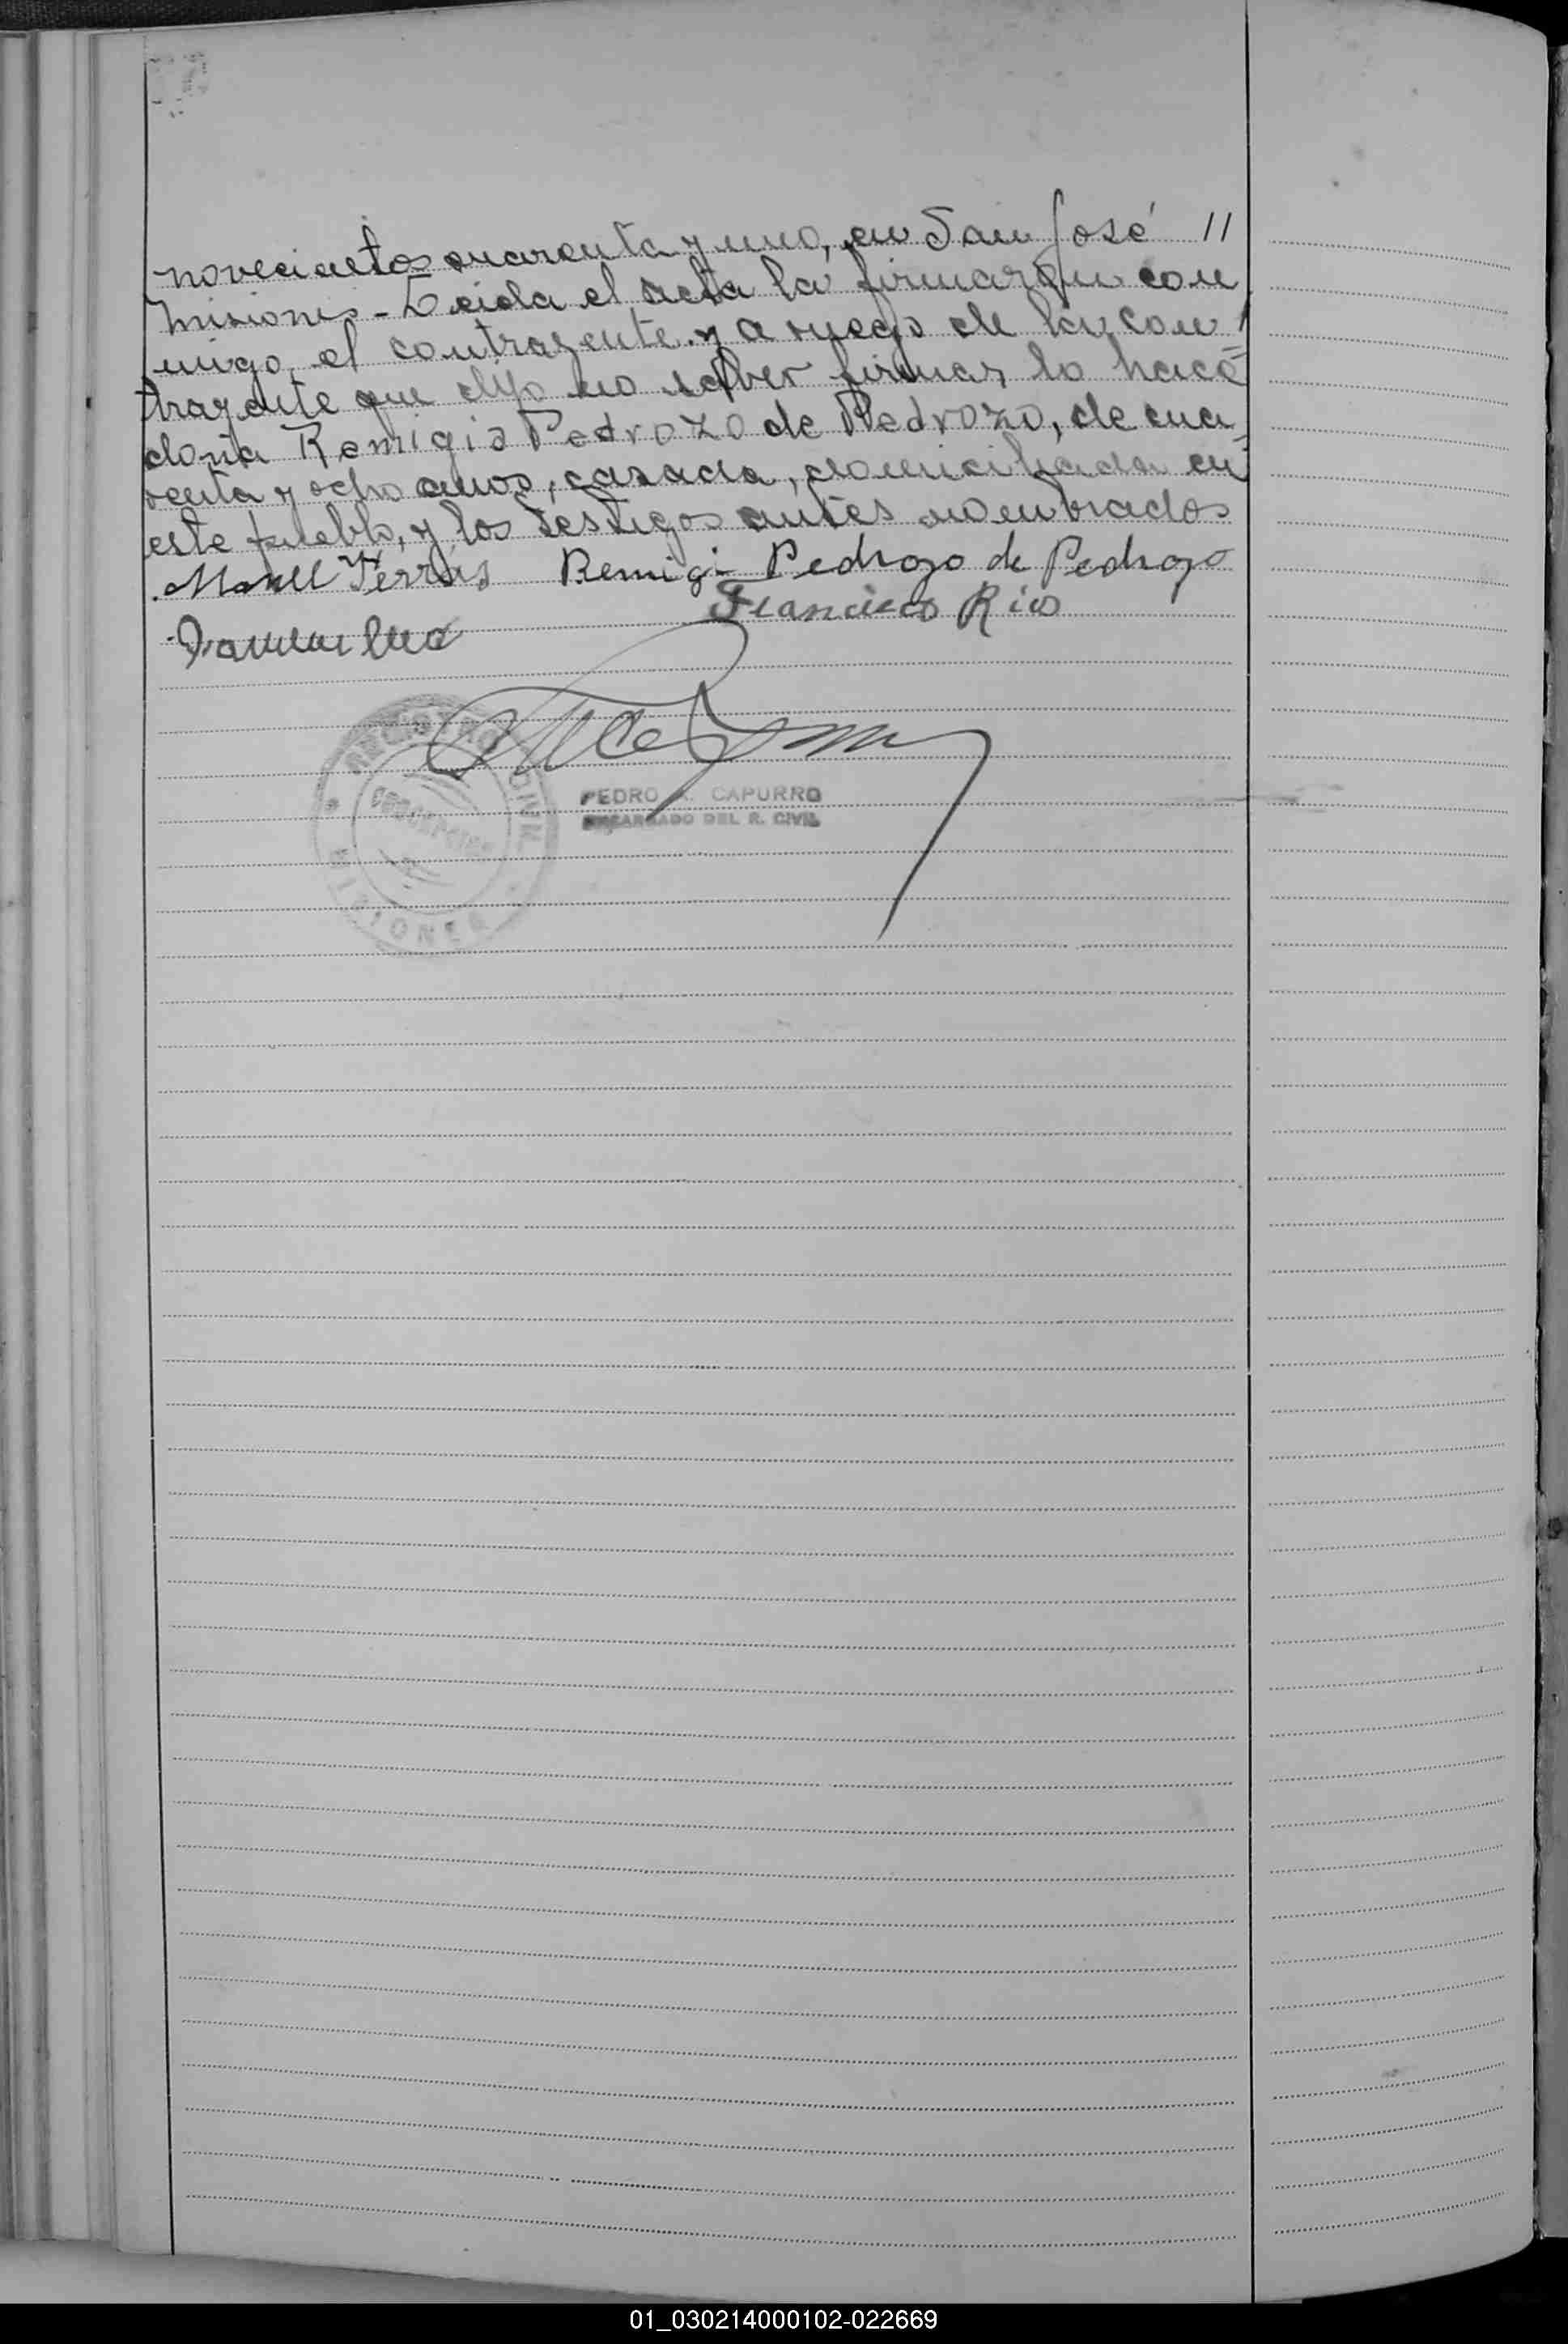 novecientos cuarenta y uno, en San José //
Misiones - Leida el acta la firmaron con
migo, el contrayente y a ruego de la con
trayente que dijo no saber firmar lo hace
doña Remigia Pedrozo de Pedrozo, de cua
renta y ocho años, casada, domiciliada en
este pueblo, y los testigos antes nombrados
Remigi Pedrozo de Pedrozo
Francisco Rios
REGISTRO CIVIL
MISIONES
PEDRO CAPURRO
ENCARGADO DEL R. CIVIL
01_030214000102-022669